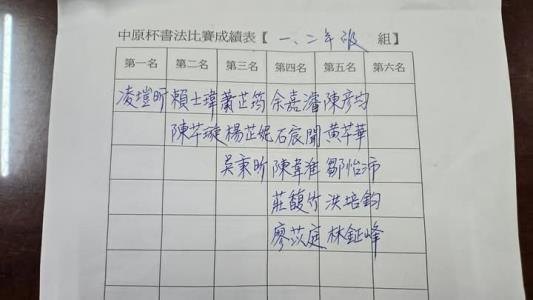 中原杯書法比賽成績表【一、二年級 組】
第一名 第二名 第三名 第四名 第五名 第六名
凌塏昕 賴士瑋 蕭芷筠 余嘉濬 陳彥均
陳芊璇 楊芷妮 石宸閎 黃芊華
吳秉昕 陳韋淮 鄒怡沛
莊馥竹 洪培鈞
廖苡庭 林鉦峰